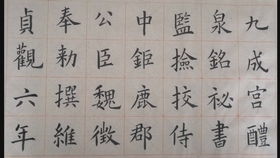 九成宮醴
泉銘祕書
監撿挍侍
中鉅鹿郡
公臣魏徵
奉勅撰維
貞觀六年